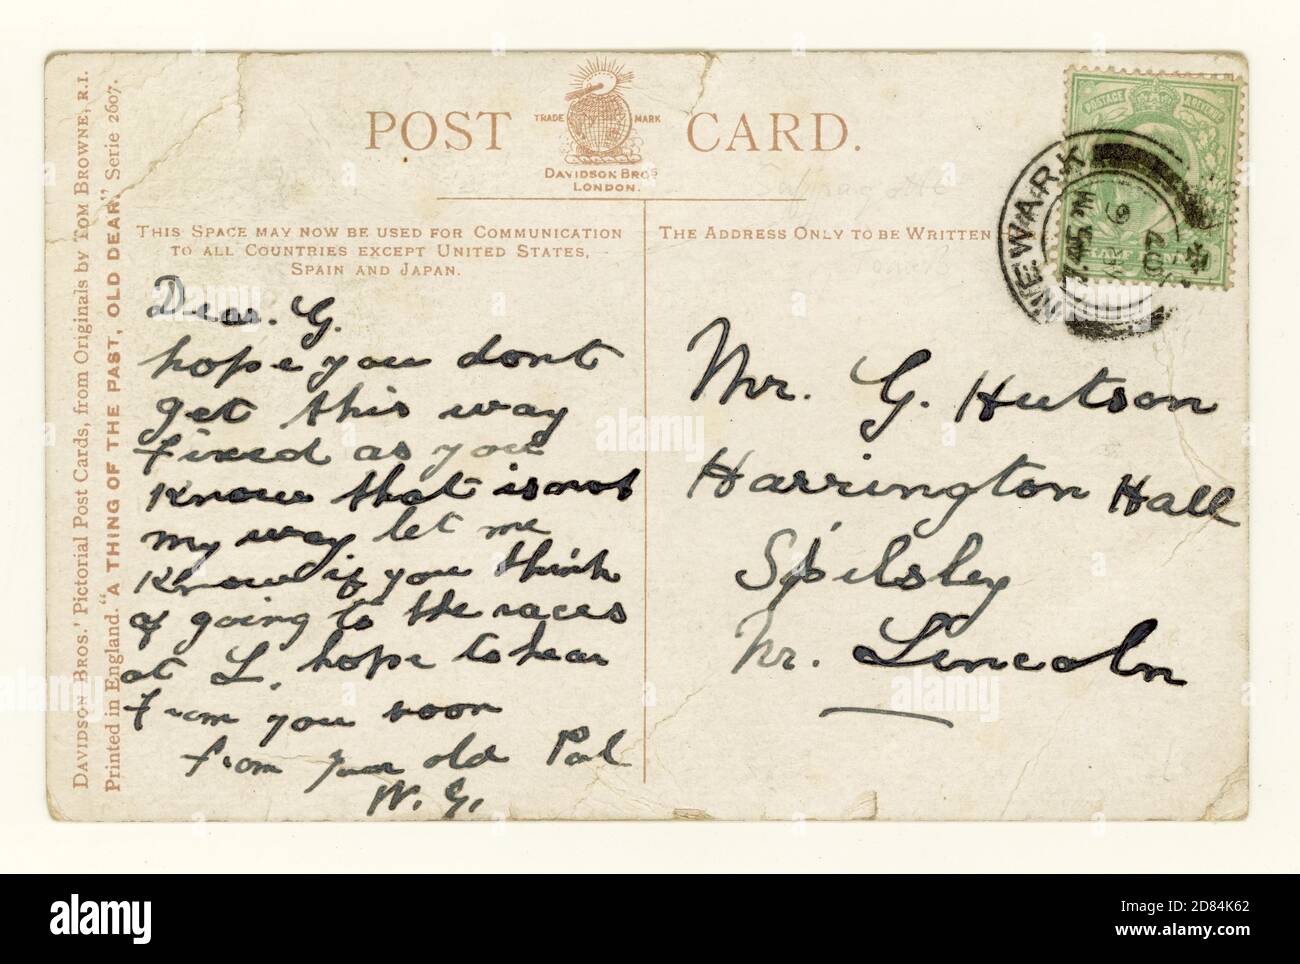 POST CARD.
TRADE MARK
DAVIDSON BROS
LONDON.
THIS SPACE MAY NOW BE USED FOR COMMUNICATION
TO ALL COUNTRIES EXCEPT UNITED STATES,
SPAIN AND JAPAN.
THE ADDRESS ONLY TO BE WRITTEN
DAVIDSON BROS.' Pictorial Post Cards, from Originals by TOM BROWNE, R.I.
Printed in England. "A THING OF THE PAST, OLD DEAR." Serie 2607.
POSTAGE & REVENUE
NEWARK
7.45 PM
07
Dear. G.
hope you dont
get this way
fixed as you
know that is not
my way let me
know if you think
of going to the races
at L. hope to hear
from you soon
from your old Pal
W. G.
Mr. G. Hutson
Harrington Hall
Spilsby
Nr. Lincoln
alamy
Image ID: 2D84K62
www.alamy.com